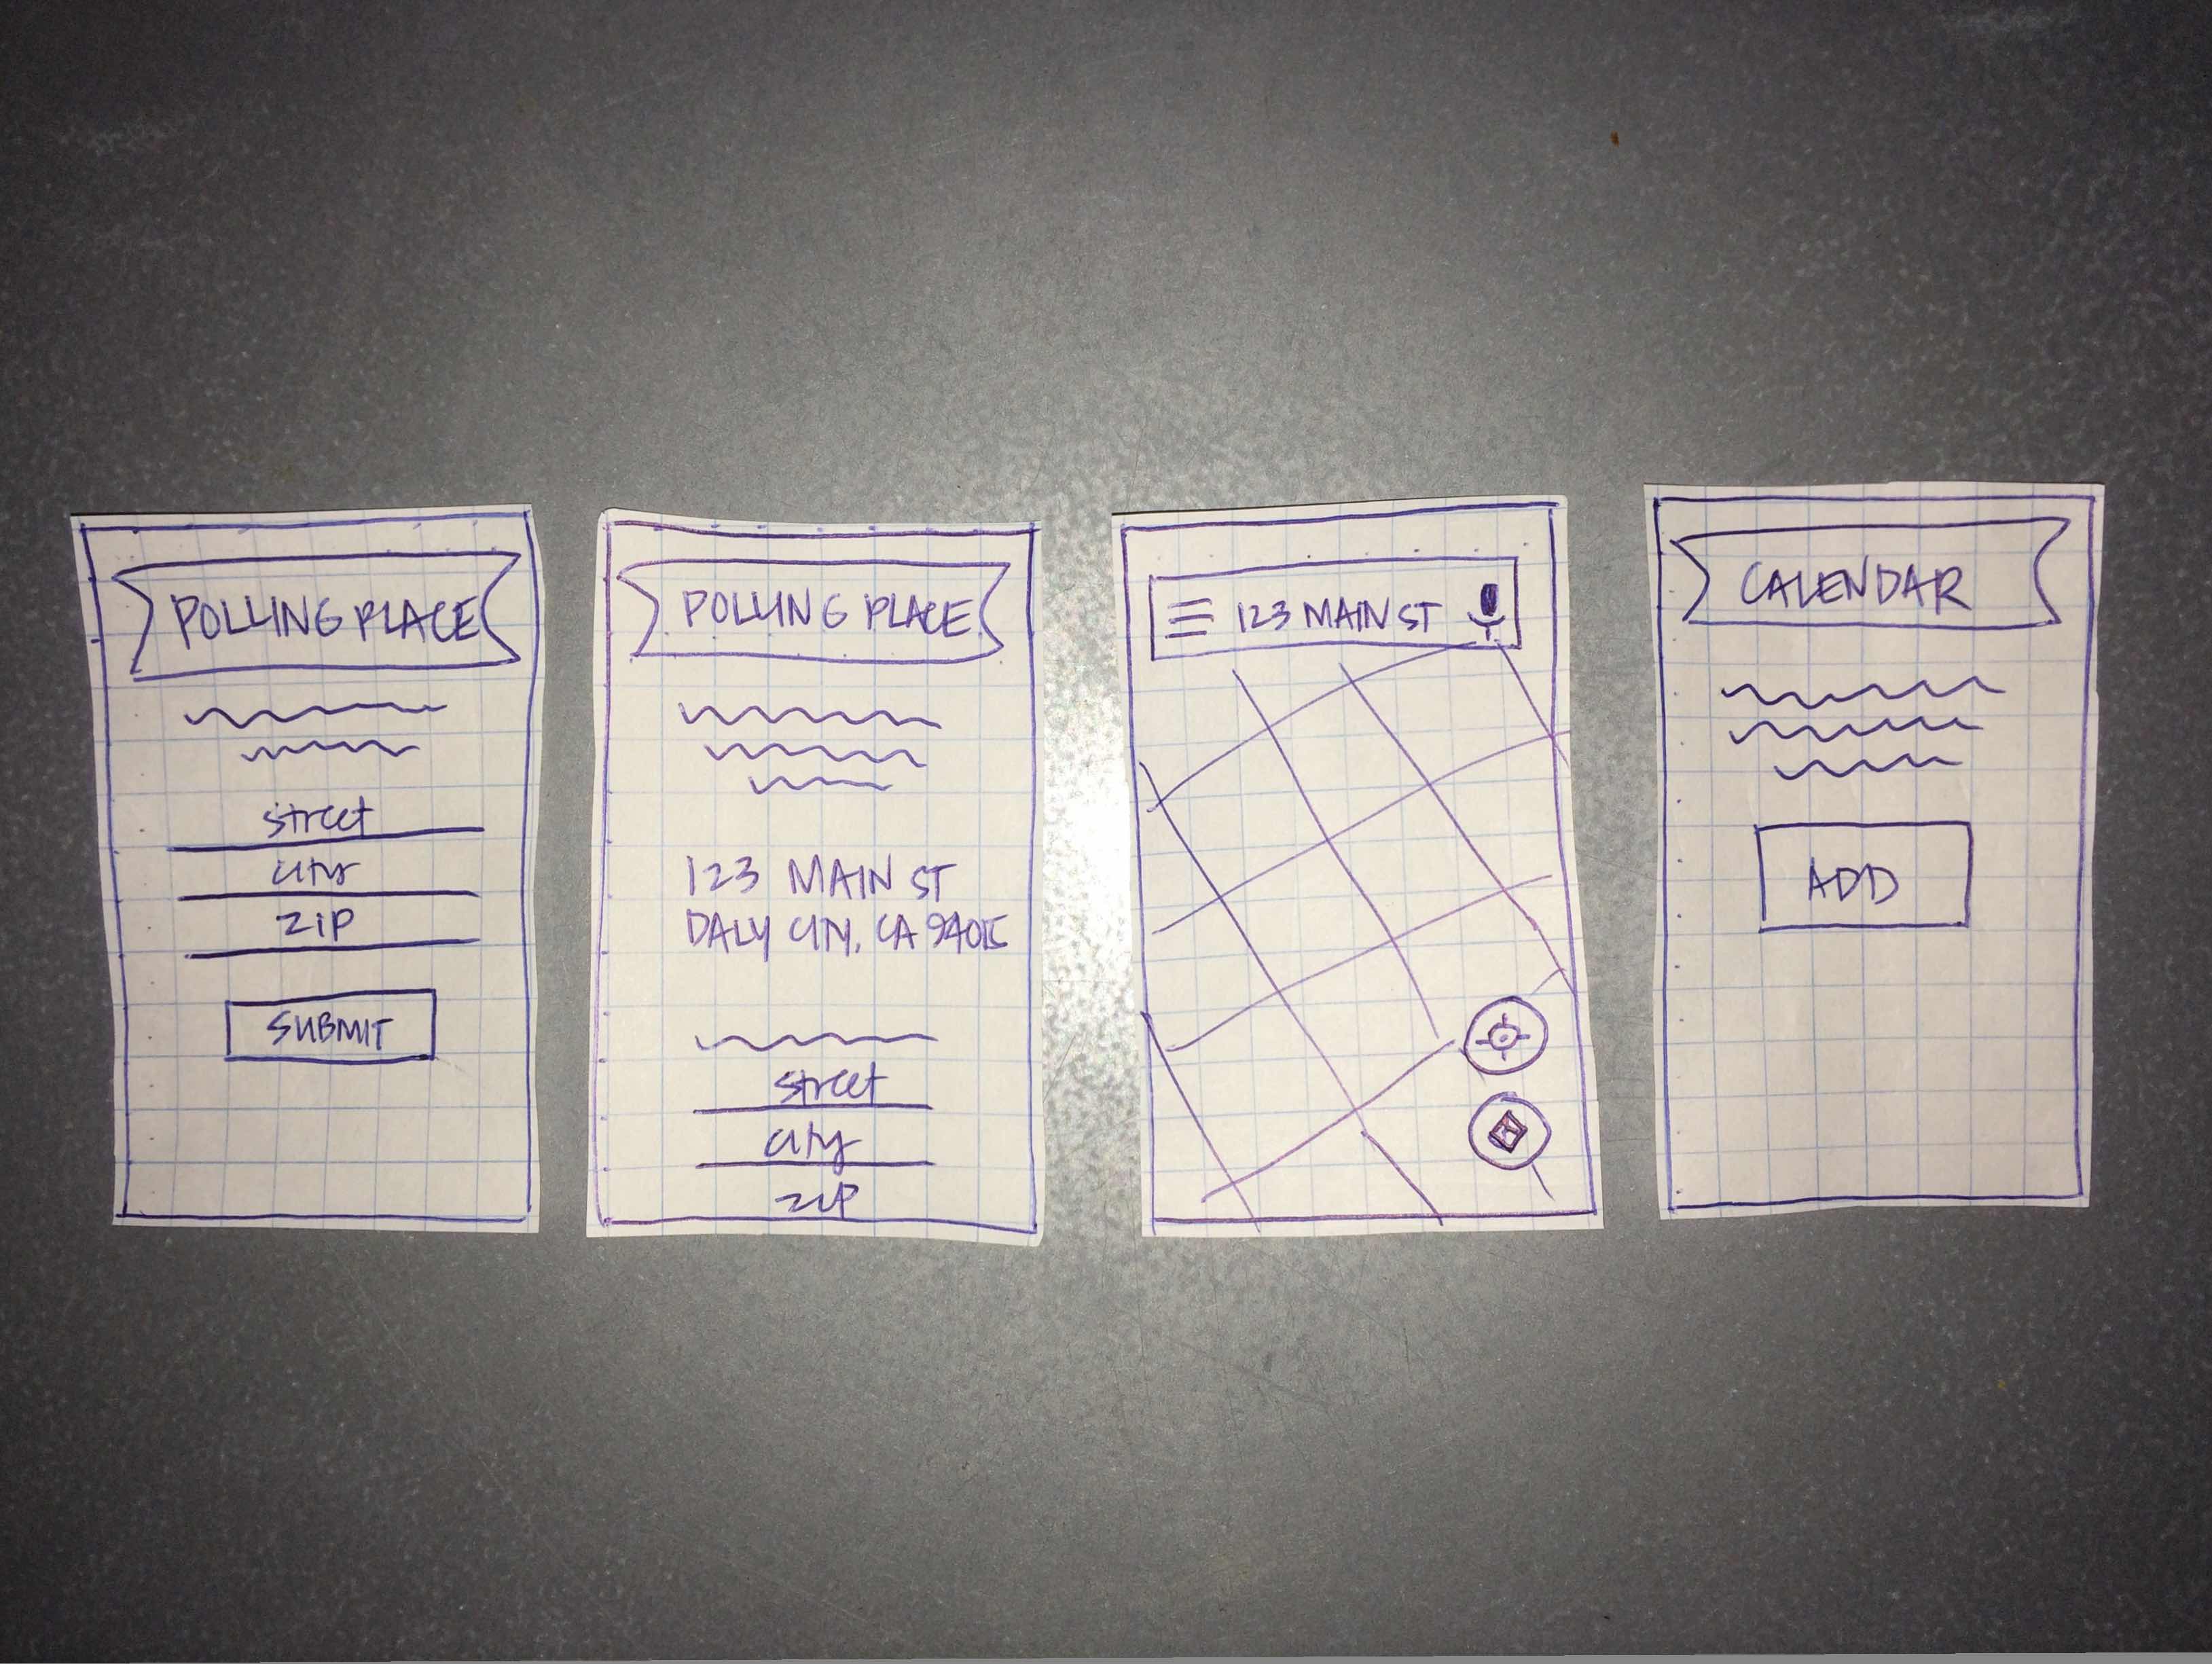 POLLING PLACE
street
city
ZIP
SUBMIT
POLLING PLACE
123 MAIN ST
DALY CITY, CA 94015
street
city
ZIP
123 MAIN ST
CALENDAR
ADD